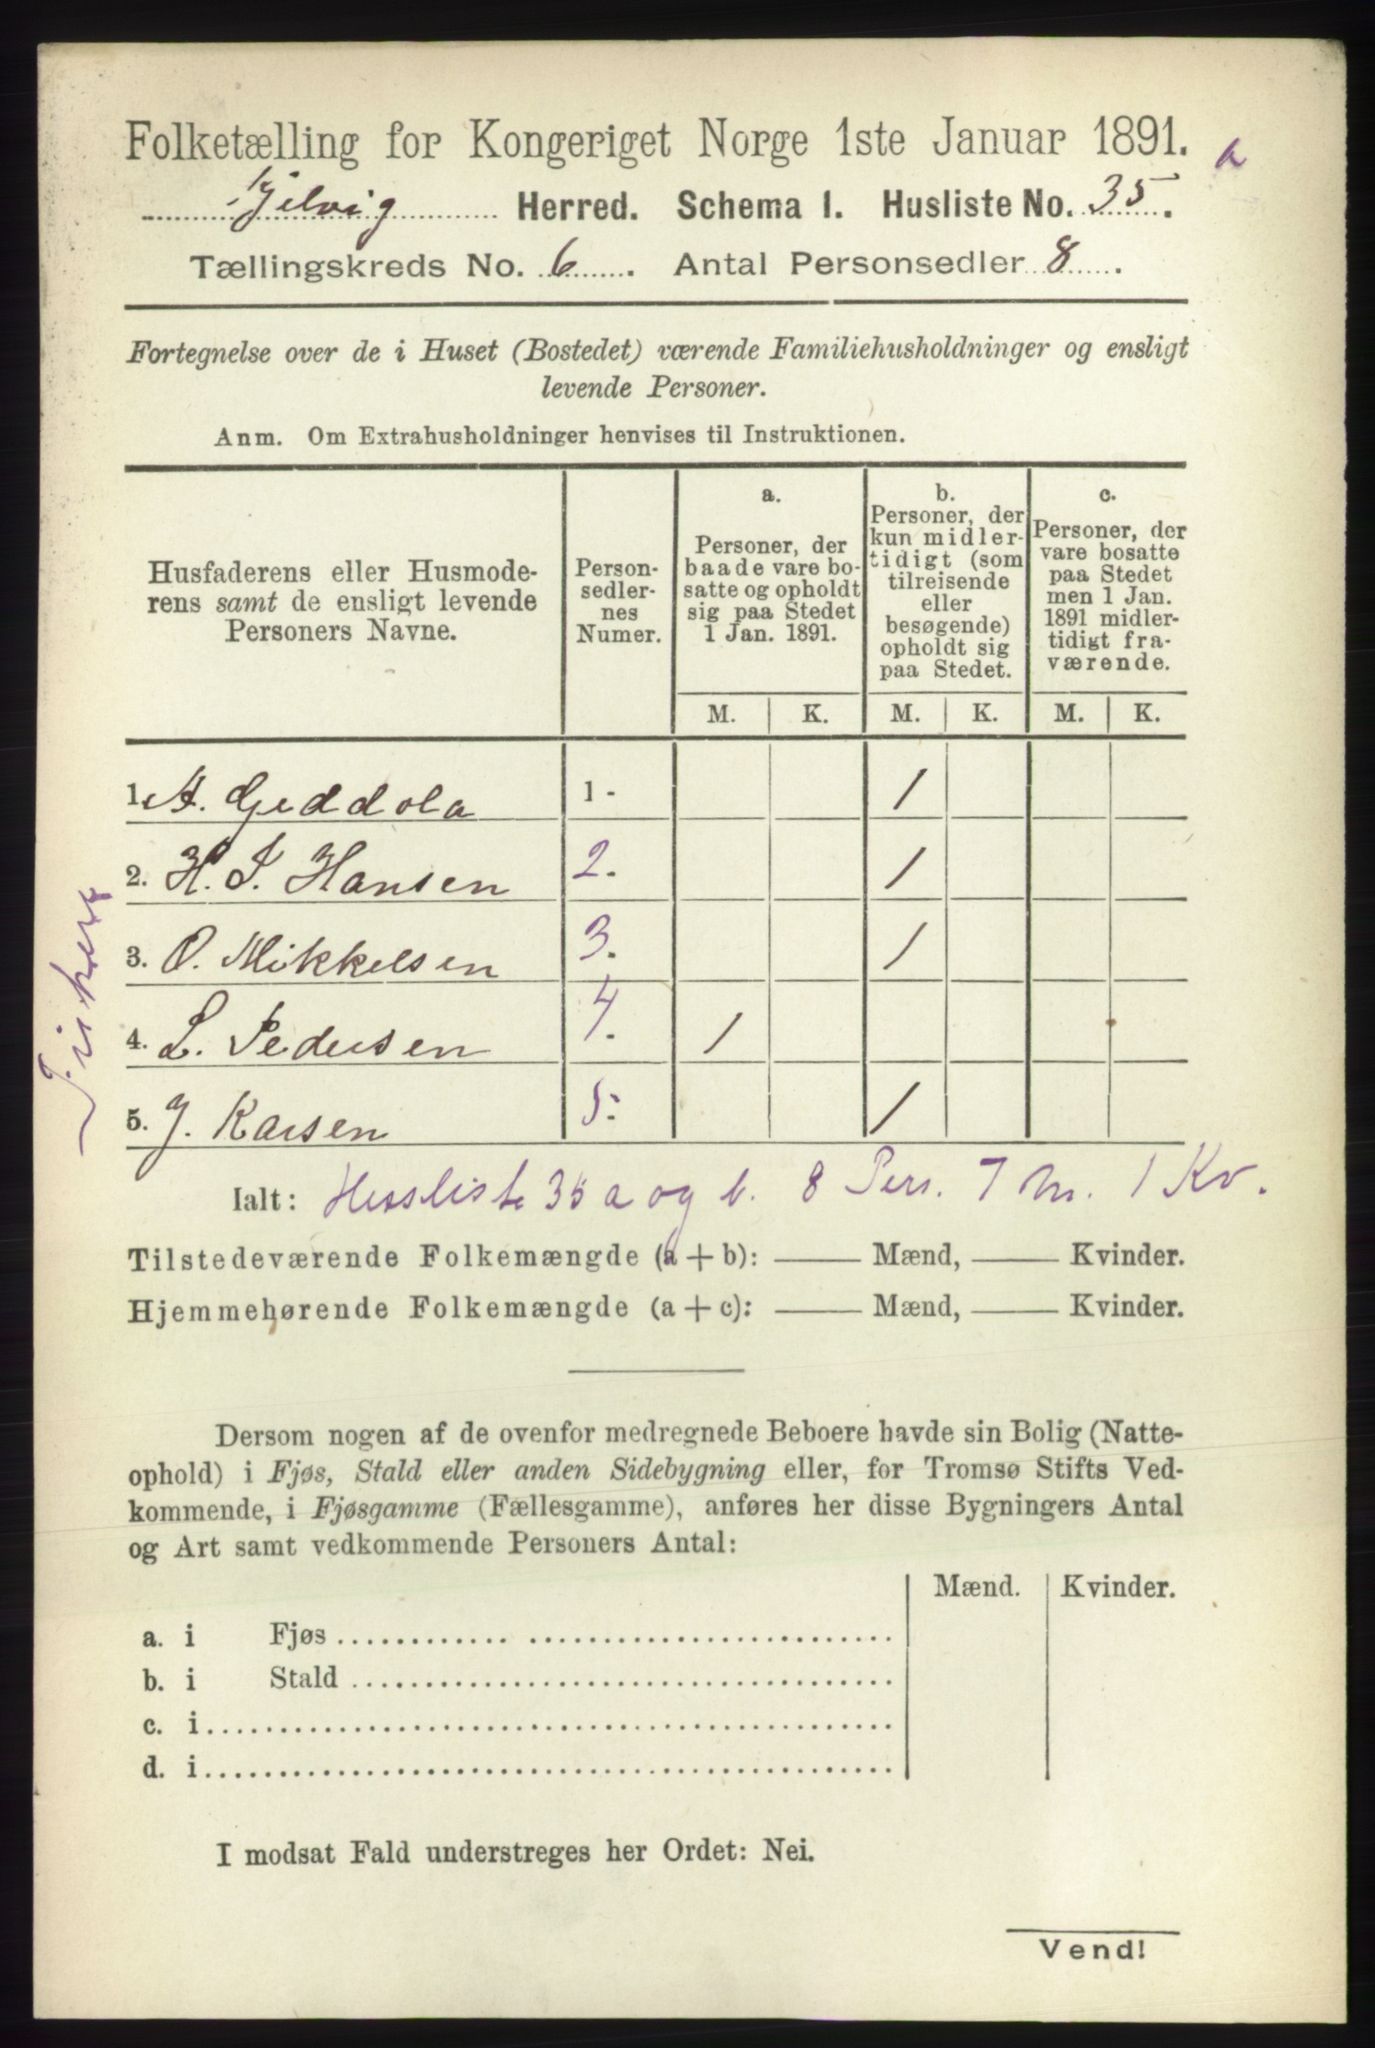 Folketælling for Kongeriget Norge 1ste Januar 1891. a
Kjelvig Herred. Schema 1. Husliste No. 35.
Tællingskreds No. 6. Antal Personsedler 8.
Fortegnelse over de i Huset (Bostedet) værende Familiehusholdninger og ensligt
levende Personer.
Anm. Om Extrahusholdninger henvises til Instruktionen.
Husfaderens eller Husmode-
rens samt de ensligt levende
Personers Navne.
Person-
sedler-
nes
Numer.
a.
Personer, der
baade vare bo-
satte og opholdt
sig paa Stedet
1 Jan. 1891.
b.
Personer, der
kun midler-
tidigt (som
tilreisende
eller
besøgende)
opholdt sig
paa Stedet.
c.
Personer, der
vare bosatte
paa Stedet
men 1 Jan.
1891 midler-
tidigt fra-
værende.
M. K. M. K. M. K.
1. A. Geddola 1- 1
2. H. J. Hansen 2. 1
3. O. Mikkelsen 3. 1
4. L. Pedersen 4. 1
5. J. Kaisen 5. 1
Fiskere
Ialt: Husliste 35 a og b. 8 Pers. 7 M. 1 Kv.
Tilstedeværende Folkemængde (a + b): Mænd, Kvinder.
Hjemmehørende Folkemængde (a + c): Mænd, Kvinder.
Dersom nogen af de ovenfor medregnede Beboere havde sin Bolig (Natte-
ophold) i Fjøs, Stald eller anden Sidebygning eller, for Tromsø Stifts Ved-
kommende, i Fjøsgamme (Fællesgamme), anføres her disse Bygningers Antal
og Art samt vedkommende Personers Antal:
Mænd. Kvinder.
a. i Fjøs
b. i Stald
c. i
d. i
I modsat Fald understreges her Ordet: Nei.
Vend!